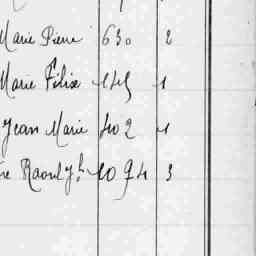 Marie Pierre 630 2
Marie Félix 145 1
Jean Marie 402 1
Raoul 1094 3